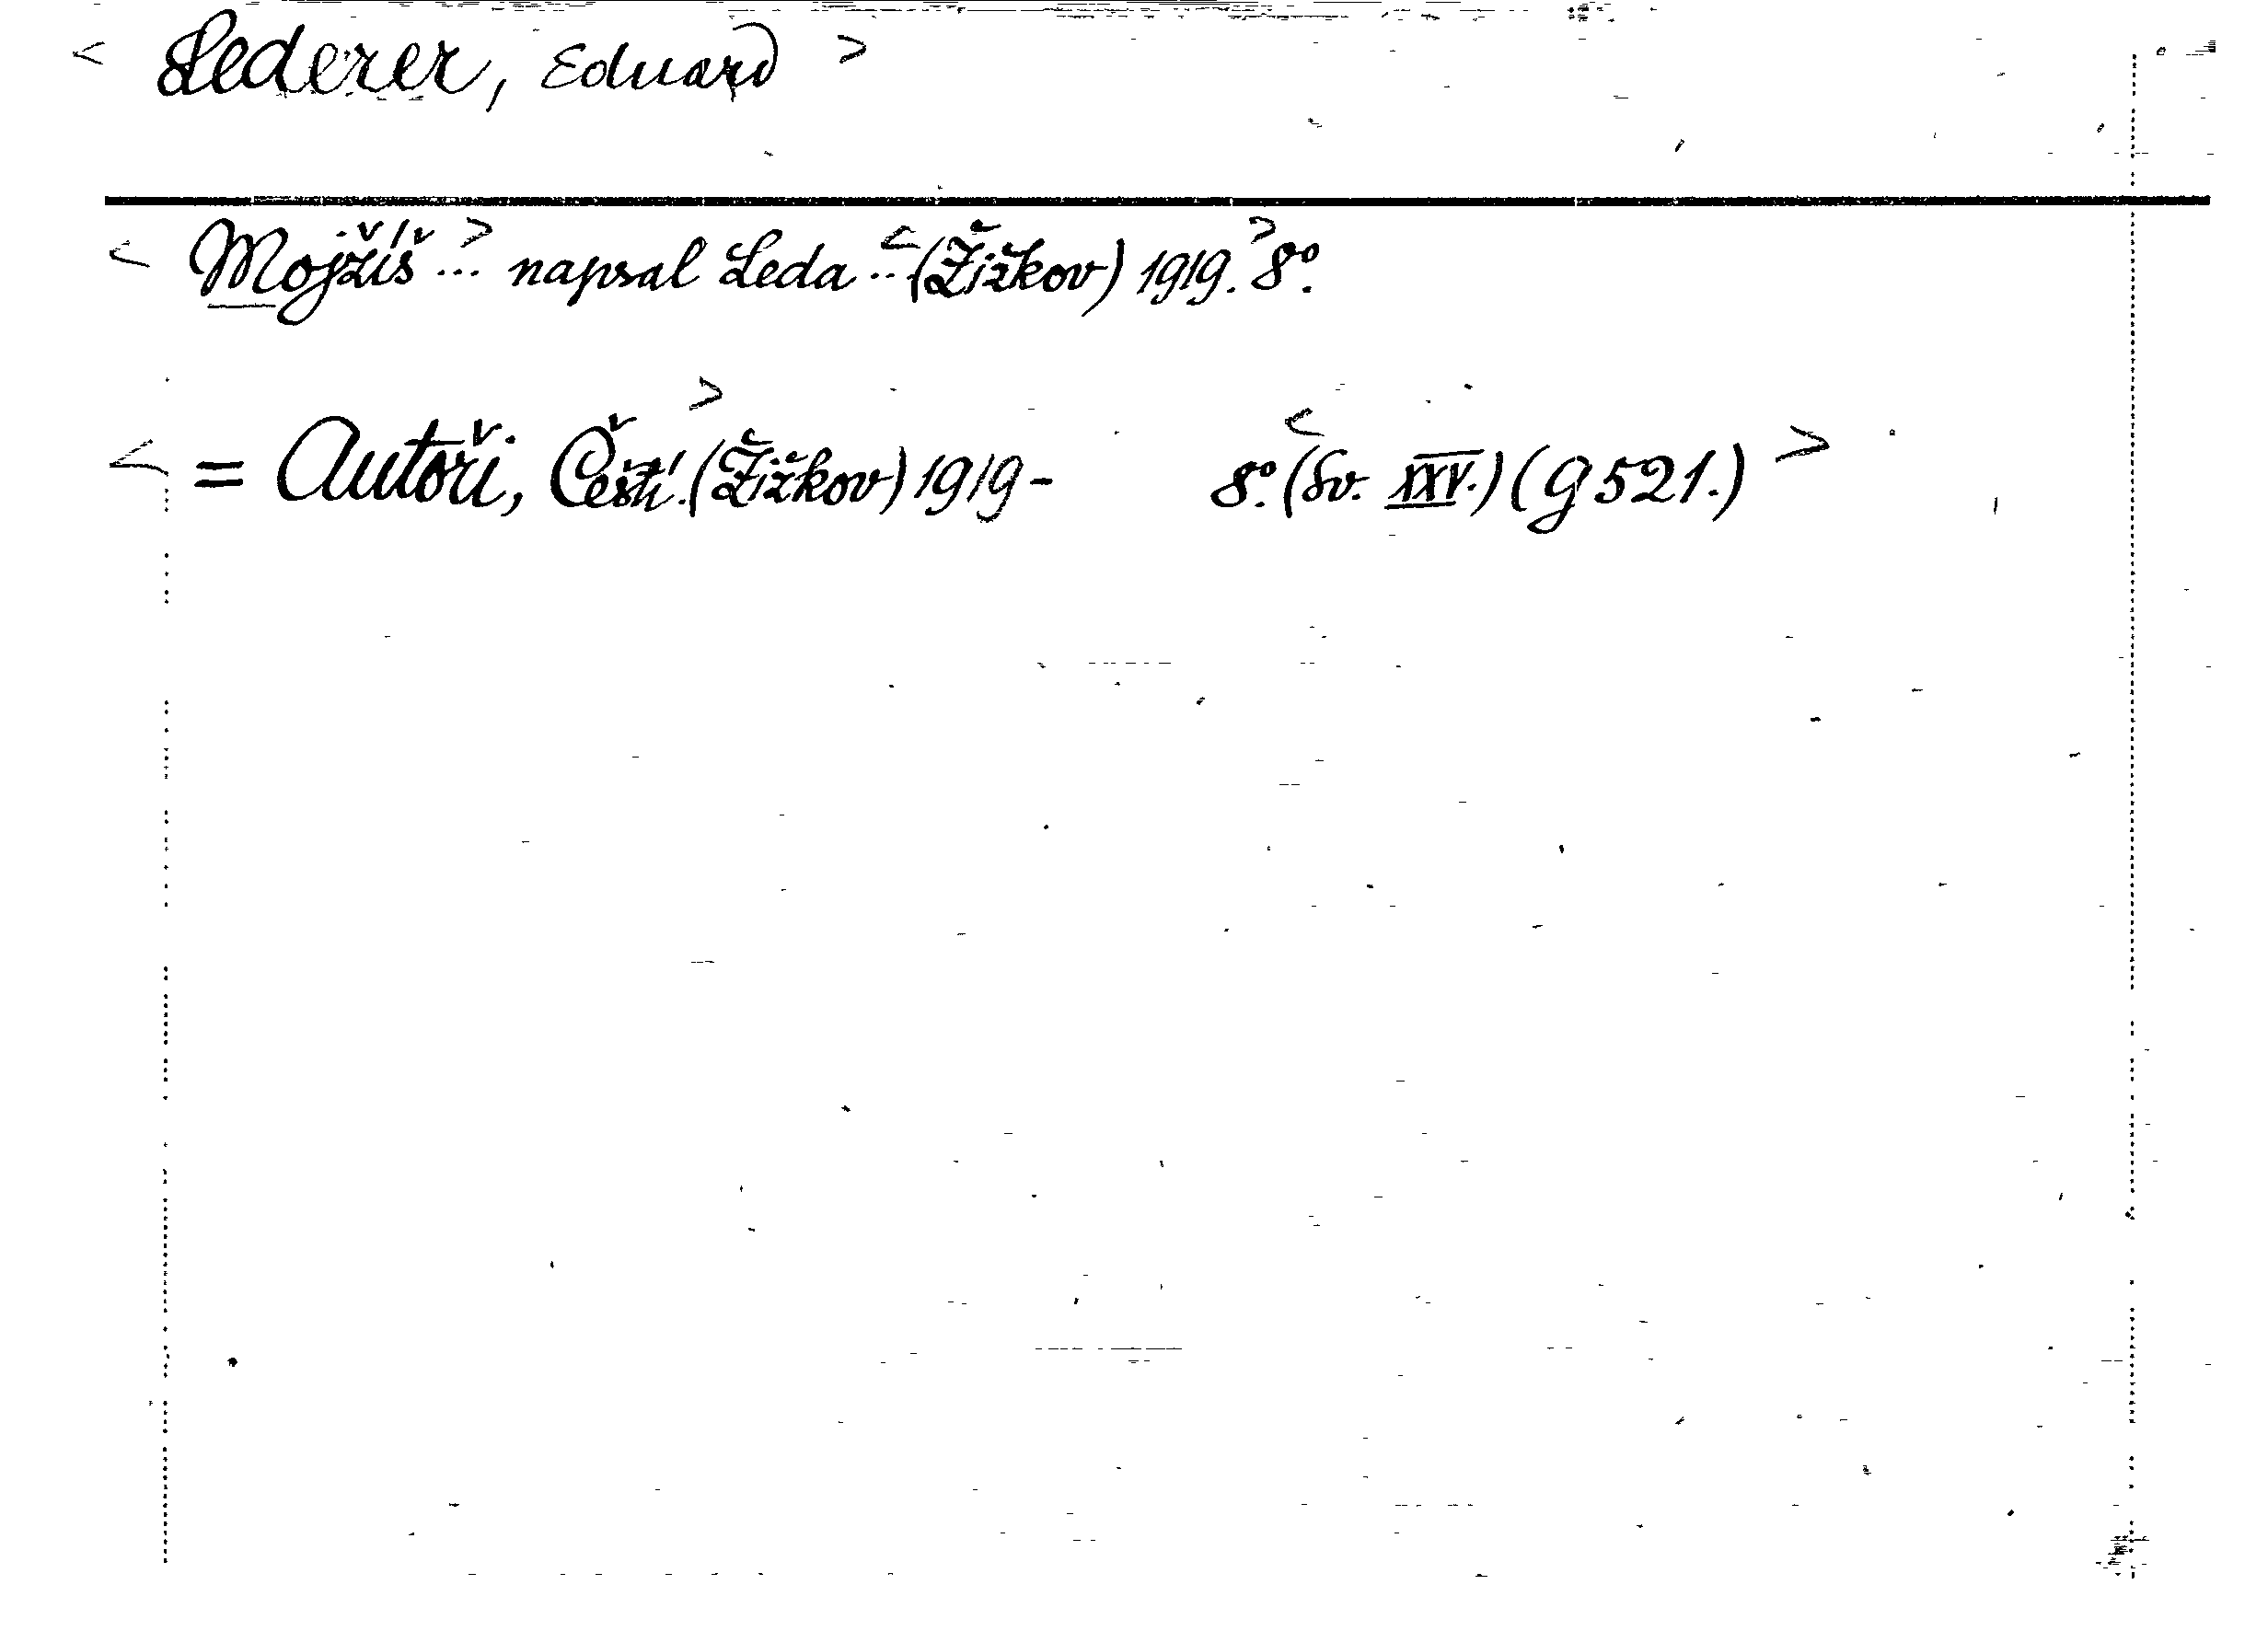 < Lederer, Eduard >
< Mojžíš > ... napsal Leda < ... (Žižkov) 1919. > 8°.
< = Autoři, Čeští. > (Žižkov) 1919 - 8°. < (Sv. XXV.) (G 521.) >